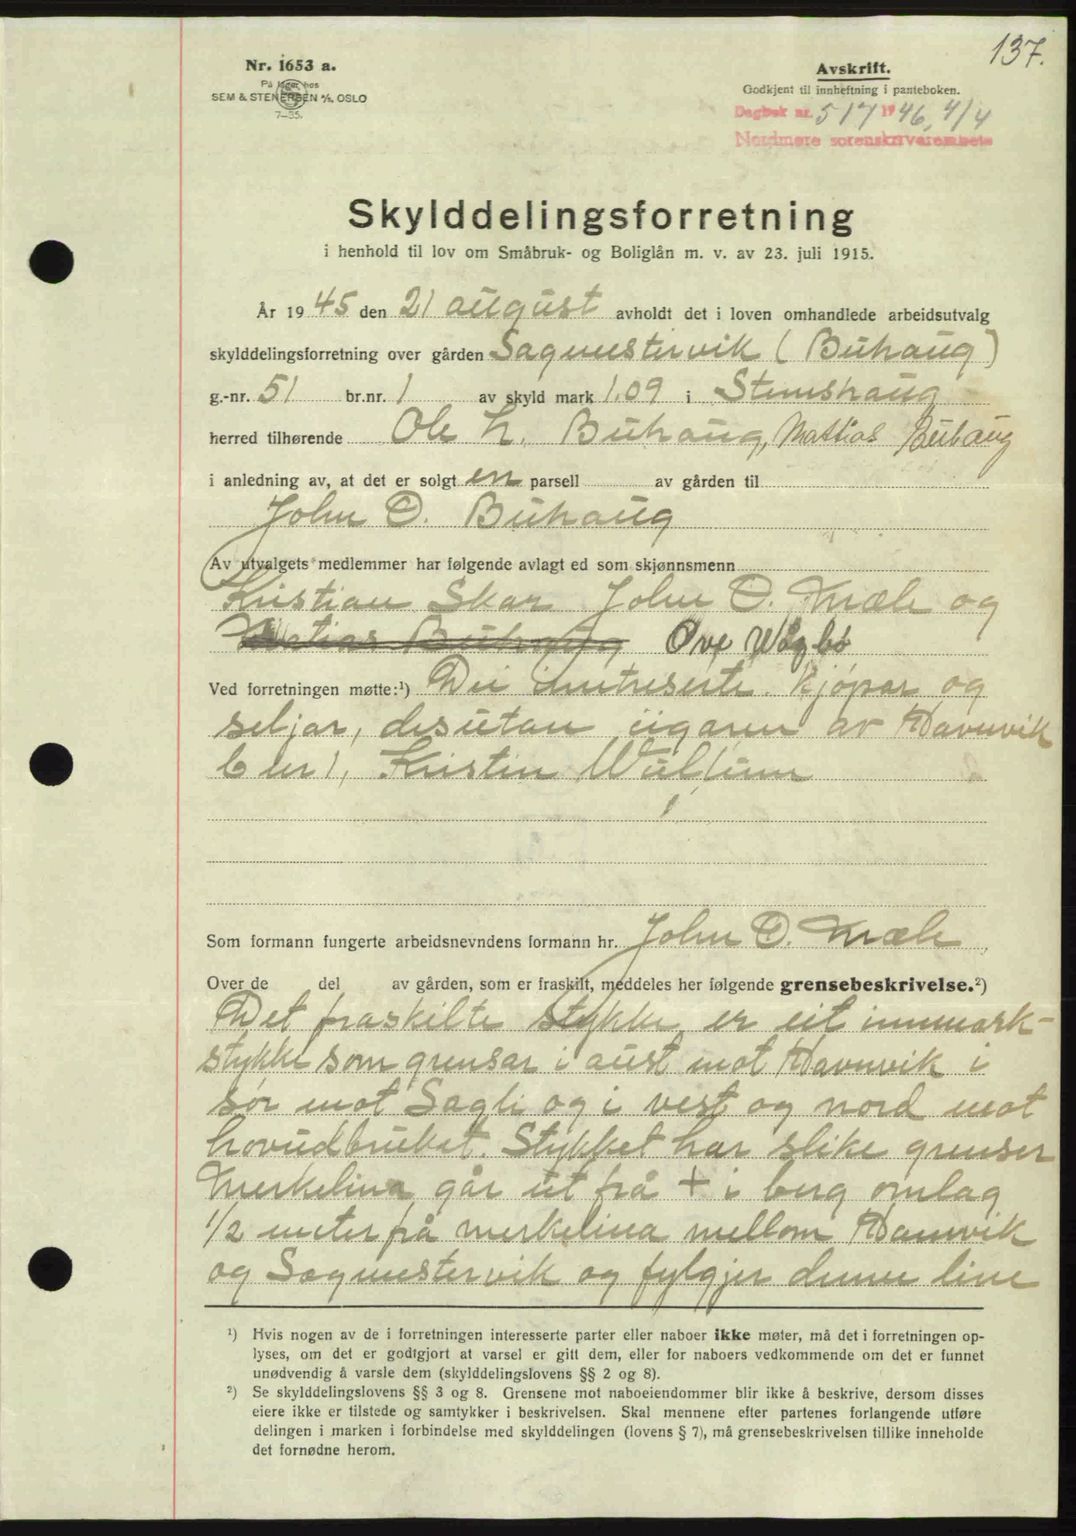 137.
Nr. 1653 a.
På lager hos
SEM & STENERSEN A/S, OSLO
7-35.
Avskrift.
Godkjent til innheftning i panteboken.
Dagbok nr. 517 1946, 4/4
Nordmøre sorenskriverembete
Skylddelingsforretning
i henhold til lov om Småbruk- og Boliglån m. v. av 23. juli 1915.
År 1945 den 21 august avholdt det i loven omhandlede arbeidsutvalg
skylddelingsforretning over gården Sagmestervik (Buhaug)
g.-nr. 51 br.nr. 1 av skyld mark 1.09 i Stemshaug
herred tilhørende Ole L. Buhaug, Mattias Buhaug
i anledning av, at det er solgt en parsell av gården til
John O. Buhaug
Av utvalgets medlemmer har følgende avlagt ed som skjønnsmenn
Kristian Skar John O. Mæle og
Matias Buhaug Ove Vågbø
Ved forretningen møtte:¹) Dei intreserte kjøpar og
seljar, desutan eigaren av Havnvik
b nr 1, Kristin
Som formann fungerte arbeidsnevndens formann hr. John O. Mæle
Over de del av gården, som er fraskilt, meddeles her følgende grensebeskrivelse.²)
Det fraskilte stykke er eit innmark-
stykke som grensar i aust mot Havnvik i
sør mot Sagli og i vest og nord mot
hovudbruket. Stykket har slike grenser
Merkelina går ut frå + i berg omlag
1/2 meter frå merkelina mellom Havnvik
og Sagmestervik og fylgjer denne line
¹) Hvis nogen av de i forretningen interesserte parter eller naboer ikke møter, må det i forretningen op-
lyses, om det er godtgjort at varsel er gitt dem, eller for naboers vedkommende om det er funnet
unødvendig å varsle dem (skylddelingslovens §§ 2 og 8).
²) Se skylddelingslovens §§ 3 og 8. Grensene mot naboeiendommer blir ikke å beskrive, dersom disses
eiere ikke er tilstede og samtykker i beskrivelsen. Skal mennene efter partenes forlangende utføre
delingen i marken i forbindelse med skylddelingen (lovens § 7), må grensebeskrivelsen tillike inneholde
det fornødne herom.